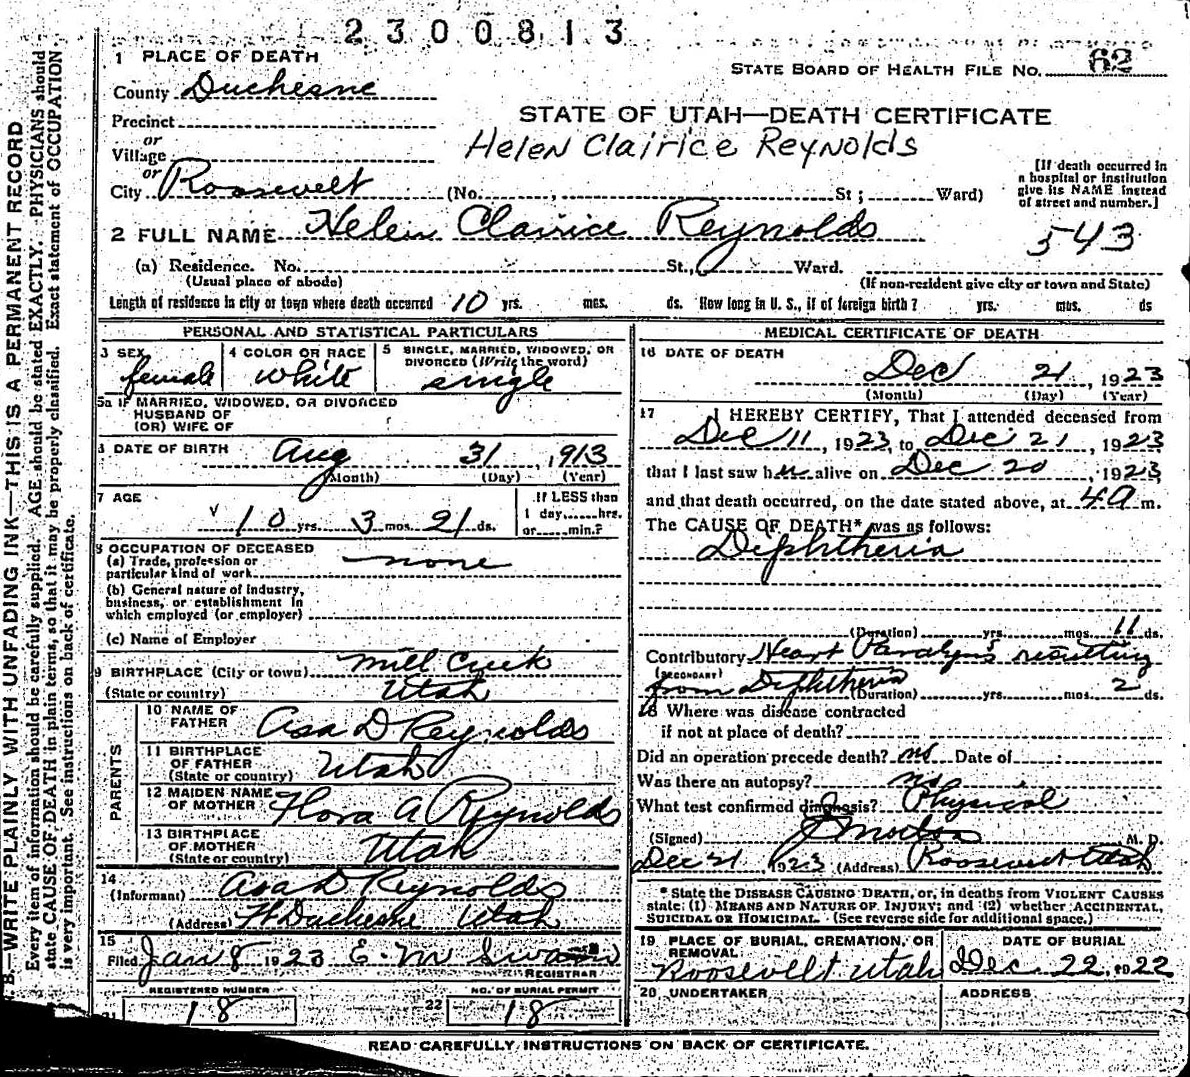 2300813
1 PLACE OF DEATH
STATE BOARD OF HEALTH FILE No. 62
County Duchesne
STATE OF UTAH—DEATH CERTIFICATE
Precinct
Helen Clairice Reynolds
or
Village
or
City Roosevelt (No. , St ; Ward)
[If death occurred in
a hospital or institution
give its NAME instead
of street and number.]
2 FULL NAME Helen Clairice Reynolds
543
(a) Residence. No. St., Ward.
(Usual place of abode) (If non-resident give city or town and State)
Length of residence in city or town where death occurred 10 yrs. mos. ds. How long in U. S., if of foreign birth? yrs. mos. ds
PERSONAL AND STATISTICAL PARTICULARS
3 SEX
female
4 COLOR OR RACE
White
5 SINGLE, MARRIED, WIDOWED, OR
DIVORCED (Write the word)
single
5a IF MARRIED, WIDOWED, OR DIVORCED
HUSBAND OF
(OR) WIFE OF
DATE OF BIRTH Aug 31, 1913
(Month) (Day) (Year)
7 AGE
10 yrs. 3 mos. 21 ds.
If LESS than
1 day,......hrs.
or......min.?
8 OCCUPATION OF DECEASED
(a) Trade, profession or
particular kind of work none
(b) General nature of industry,
business, or establishment in
which employed (or employer)
(c) Name of Employer
9 BIRTHPLACE (City or town) Mill Creek
(State or country) Utah
PARENTS
10 NAME OF
FATHER Asa D Reynolds
11 BIRTHPLACE
OF FATHER
(State or country) Utah
12 MAIDEN NAME
OF MOTHER Flora A Reynolds
13 BIRTHPLACE
OF MOTHER
(State or country) Utah
14
(Informant) Asa D Reynolds
(Address) Ft Duchesne Utah
15
Filed Jan 8 1923 E. M. Swain
REGISTRAR
REGISTERED NUMBER
21 18
NO. OF BURIAL PERMIT
22 18
MEDICAL CERTIFICATE OF DEATH
16 DATE OF DEATH
Dec 21, 1923
(Month) (Day) (Year)
17 I HEREBY CERTIFY, That I attended deceased from
Dec 11, 1923, to Dec 21, 1923
that I last saw her alive on Dec 20, 1923
and that death occurred, on the date stated above, at 4 a m.
The CAUSE OF DEATH* was as follows:
Diphtheria
(Duration) yrs. mos. 11 ds.
Contributory Heart Paralysis resulting
(SECONDARY)
from Diphtheria (Duration) yrs. mos. 2 ds.
18 Where was disease contracted
if not at place of death?
Did an operation precede death? no Date of
Was there an autopsy? no
What test confirmed diagnosis? Physical
(Signed) J Morton M. D.
Dec 21, 1923 (Address) Roosevelt Utah
* State the DISEASE CAUSING DEATH, or, in deaths from VIOLENT CAUSES
state: (1) MEANS AND NATURE OF INJURY; and (2) whether ACCIDENTAL,
SUICIDAL OR HOMICIDAL. (See reverse side for additional space.)
19 PLACE OF BURIAL, CREMATION, OR
REMOVAL
Roosevelt Utah
DATE OF BURIAL
Dec 22, 1922
20 UNDERTAKER
ADDRESS
READ CAREFULLY INSTRUCTIONS ON BACK OF CERTIFICATE.
B.—WRITE PLAINLY WITH UNFADING INK—THIS IS A PERMANENT RECORD
Every item of information should be carefully supplied. AGE should be stated EXACTLY. PHYSICIANS should
state CAUSE OF DEATH in plain terms, so that it may be properly classified. Exact statement of OCCUPATION
is very important. See instructions on back of certificate.